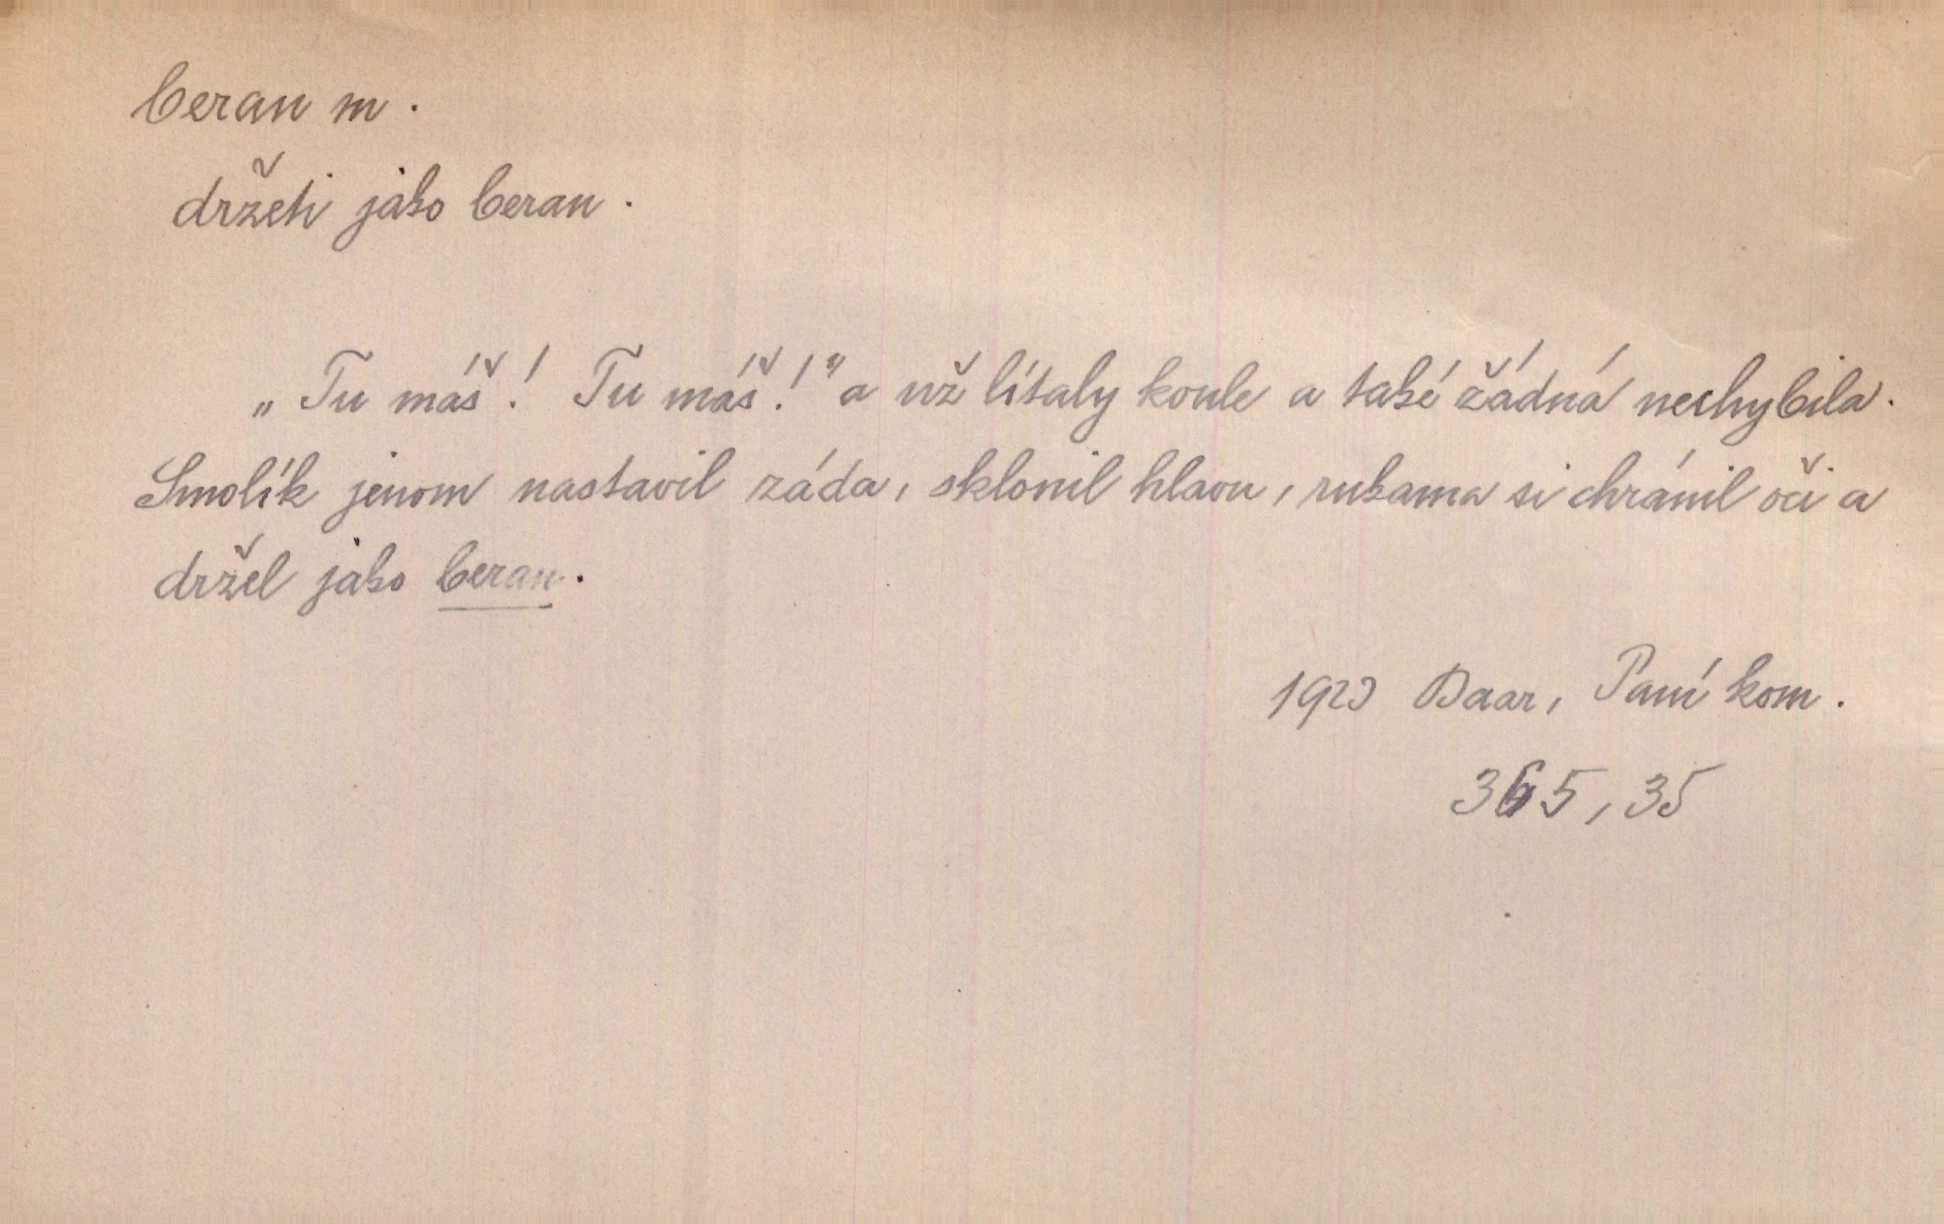 beran m.
držeti jako beran.
„Tu máš! Tu máš!" a už lítaly koule a také žádná nechybila.
Smolík jenom nastavil záda, sklonil hlavu, rukama si chránil oči a
držel jako beran.
1923 Baar, Paní kom.
365, 35